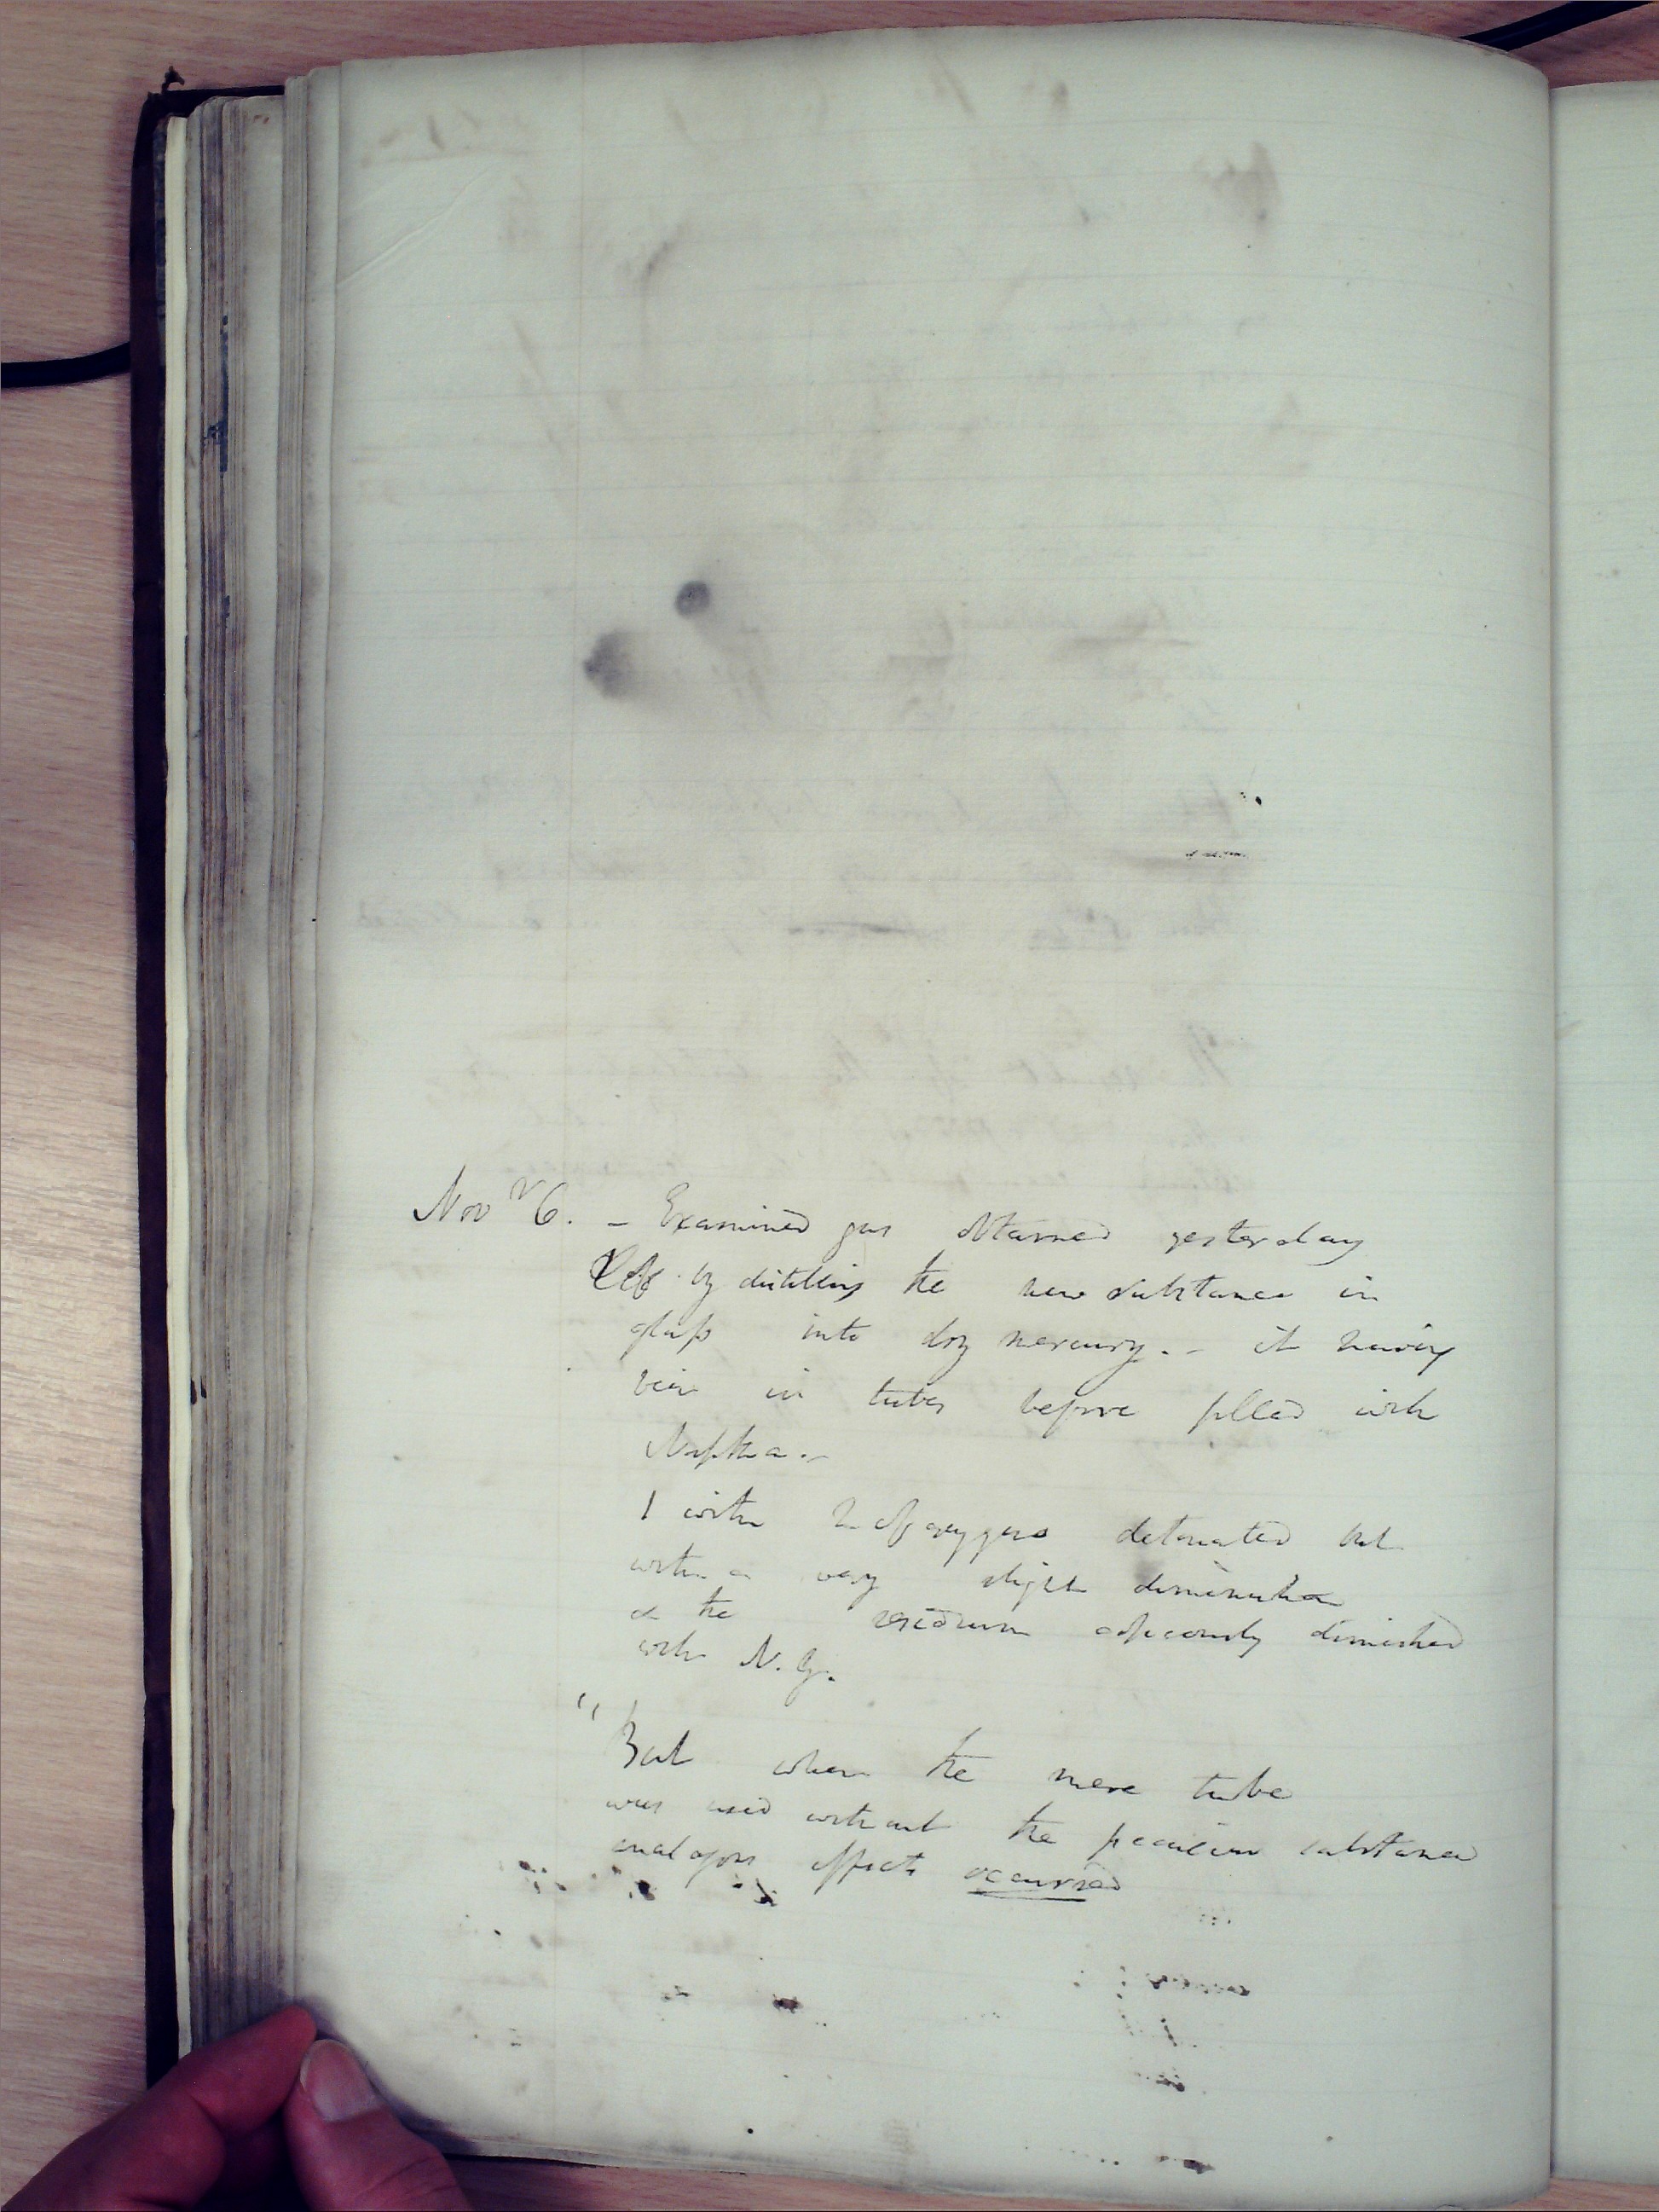 Nov r 6. - Examined gas obtained yesterday
by distilling the new substance in
glass into dry mercury. - it having
been in tubes before filled with
Naptha. -
1 with 2 of oxygene detonated but
with a very slight diminution
& the residuum copiously diminished
with N. G.
" But when the mere tube
was used without the peculiar substance
analogous effects occurred